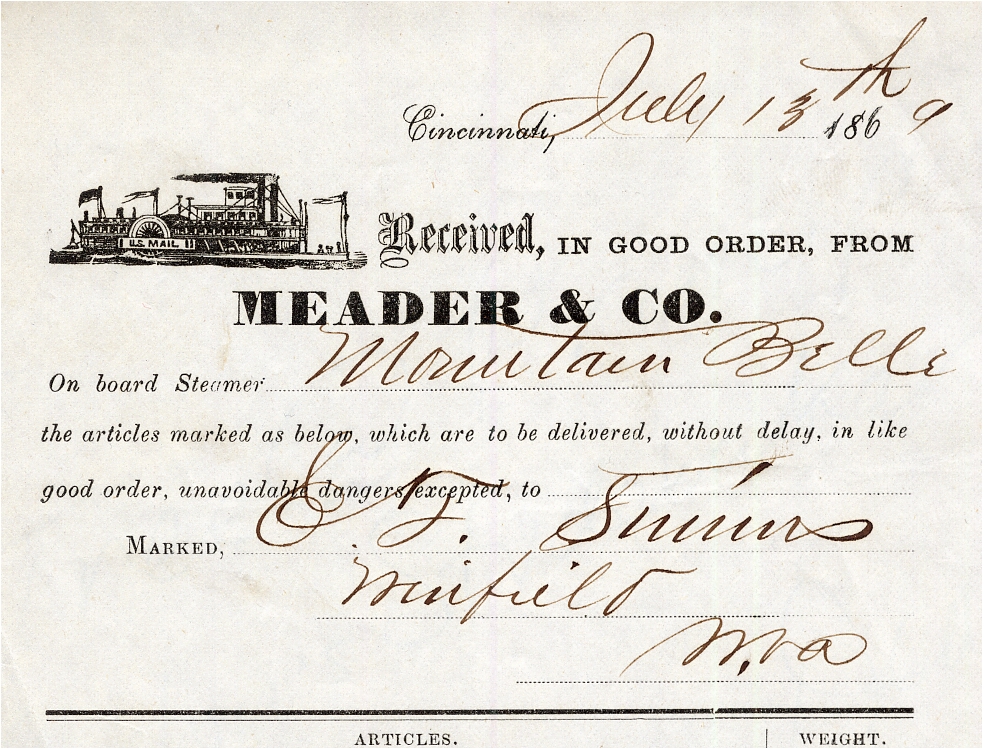 Cincinnati, July 13th 1869
U.S. MAIL
Received, IN GOOD ORDER, FROM
MEADER & CO.
On board Steamer Mountain Belle
the articles marked as below, which are to be delivered, without delay, in like
good order, unavoidable dangers excepted, to
MARKED, E. F.
Winfield
W.va
ARTICLES. WEIGHT.